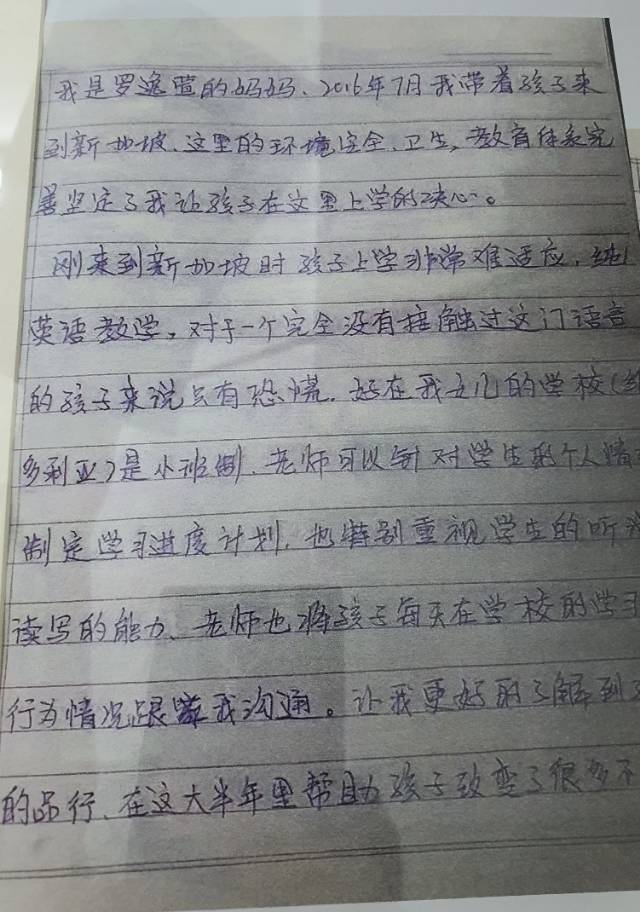 我是罗逸萱的妈妈、2016年7月我带着孩子来
到新加坡、这里的环境安全、卫生,教育体系完
善坚定了我让孩子在这里上学的决心。
刚来到新加坡时孩子上学非常难适应,纯
英语教学,对于一个完全没有接触过这门语言
的孩子来说只有恐慌.好在我女儿的学校(
多利亚)是小班制、老师可以针对学生的个人情
制定学习进度计划,也特别重视学生的听
读写的能力、老师也将孩子每天在学校的学习
行为情况跟我沟通。让我更好的了解到
的品行、在这大半年里帮助孩子改变了很多不